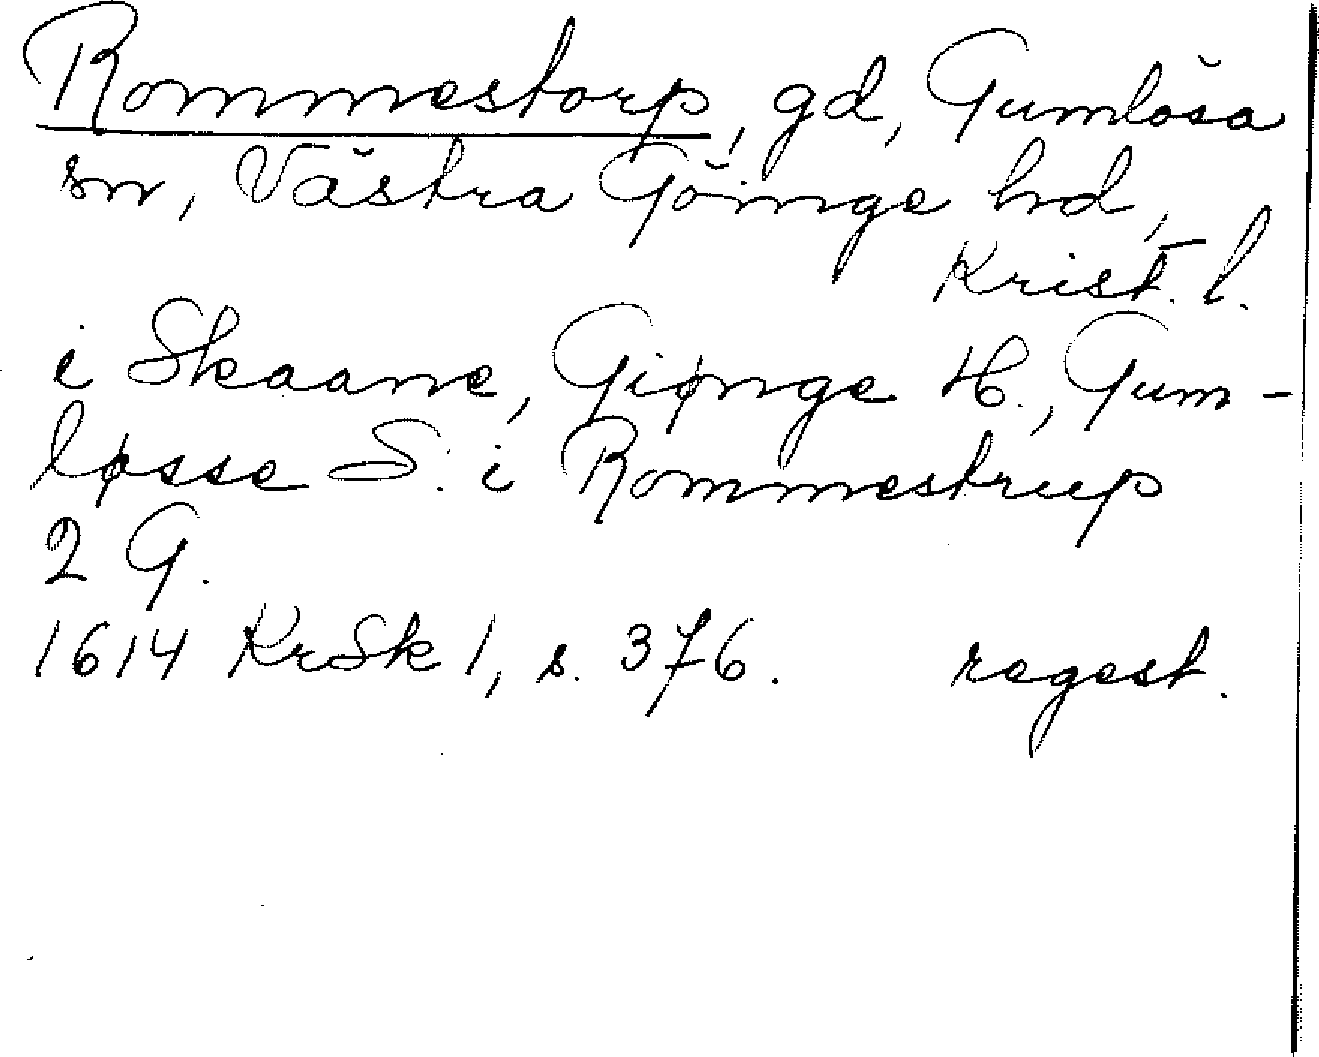 Rommestorp, gd, Gumlösa
sn, Västra Göinge hd,
Krist. l.
i Skaane, Giønge H., Gum-
løsse S. i Rommestrup
2 G.
1614 KrSk 1, s. 376. regest.